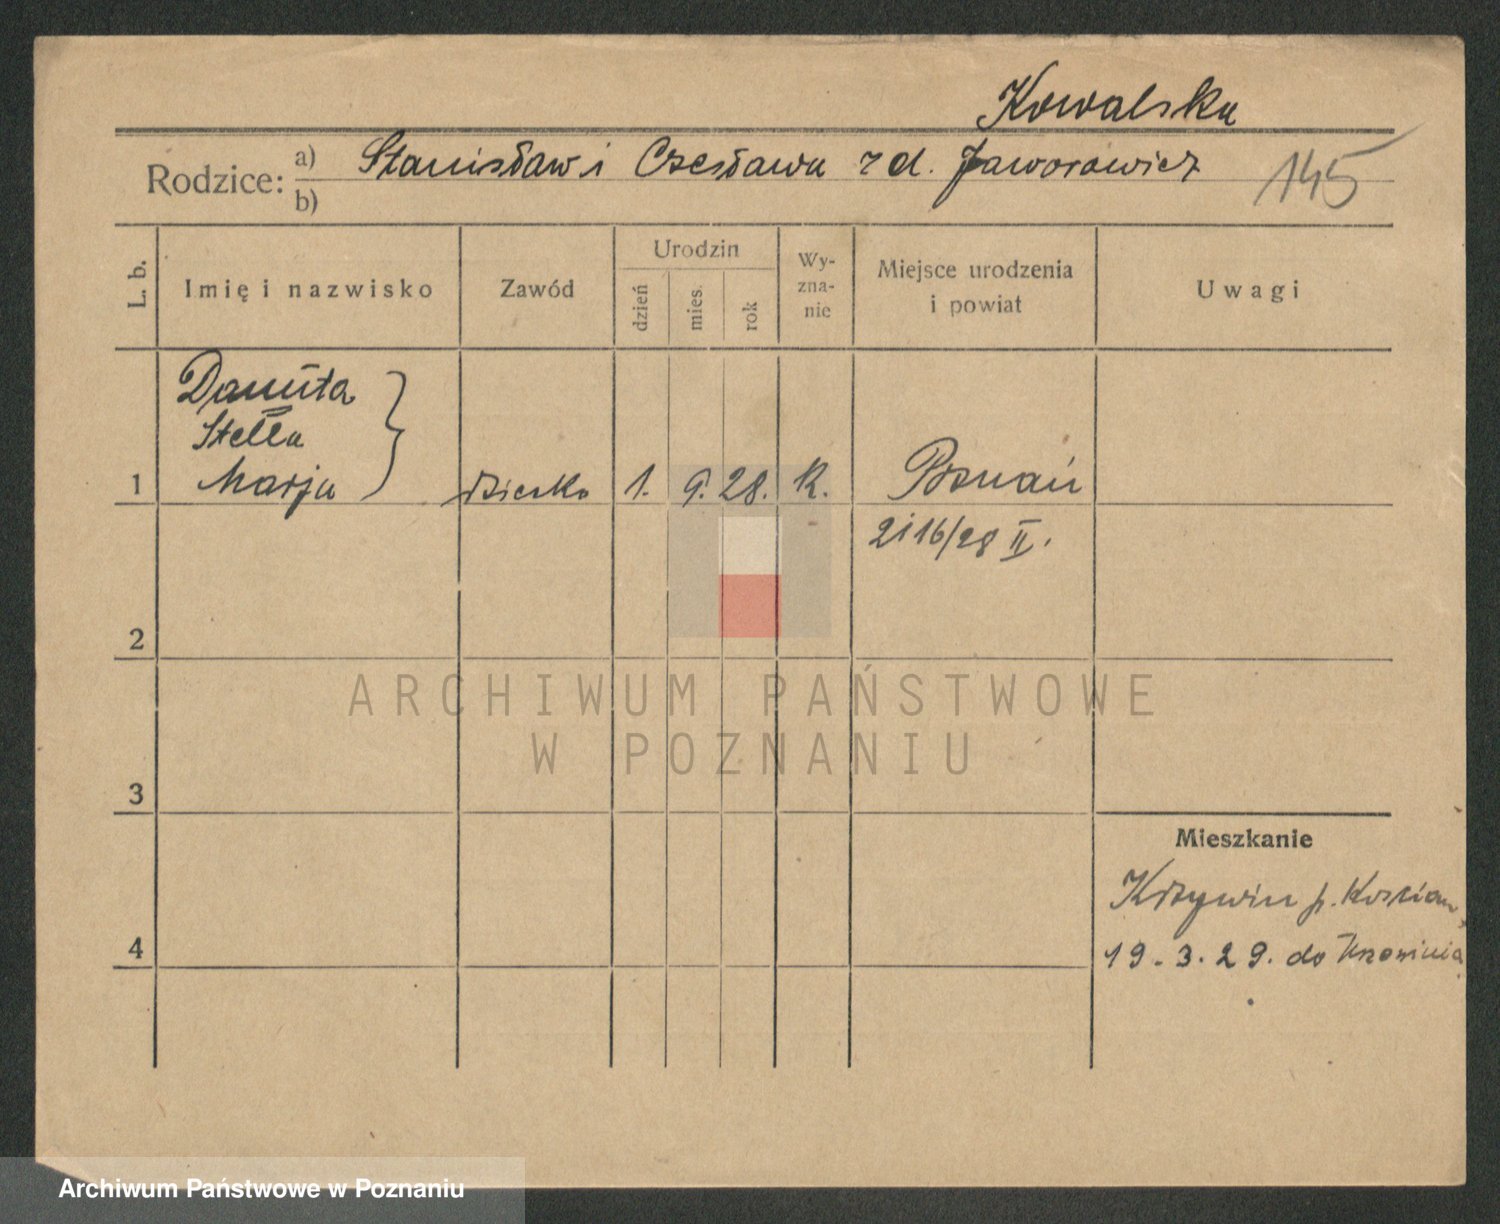 Kowalska
Rodzice: a) Stanisław i Czesława zd. Jaworowicz
b)
145
L. b.
Imię i nazwisko
Zawód
Urodzin
dzień
mies.
rok
Wy-
zna-
nie
Miejsce urodzenia
i powiat
Uwagi
Danuta
Stella
1 Marja dziecko 1. 9. 28. R. Poznań
2116/28 II.
2
3
4
ARCHIWUM PAŃSTWOWE
W POZNANIU
Mieszkanie
Krzywin p. Kościan
19.3.29. do
Archiwum Państwowe w Poznaniu